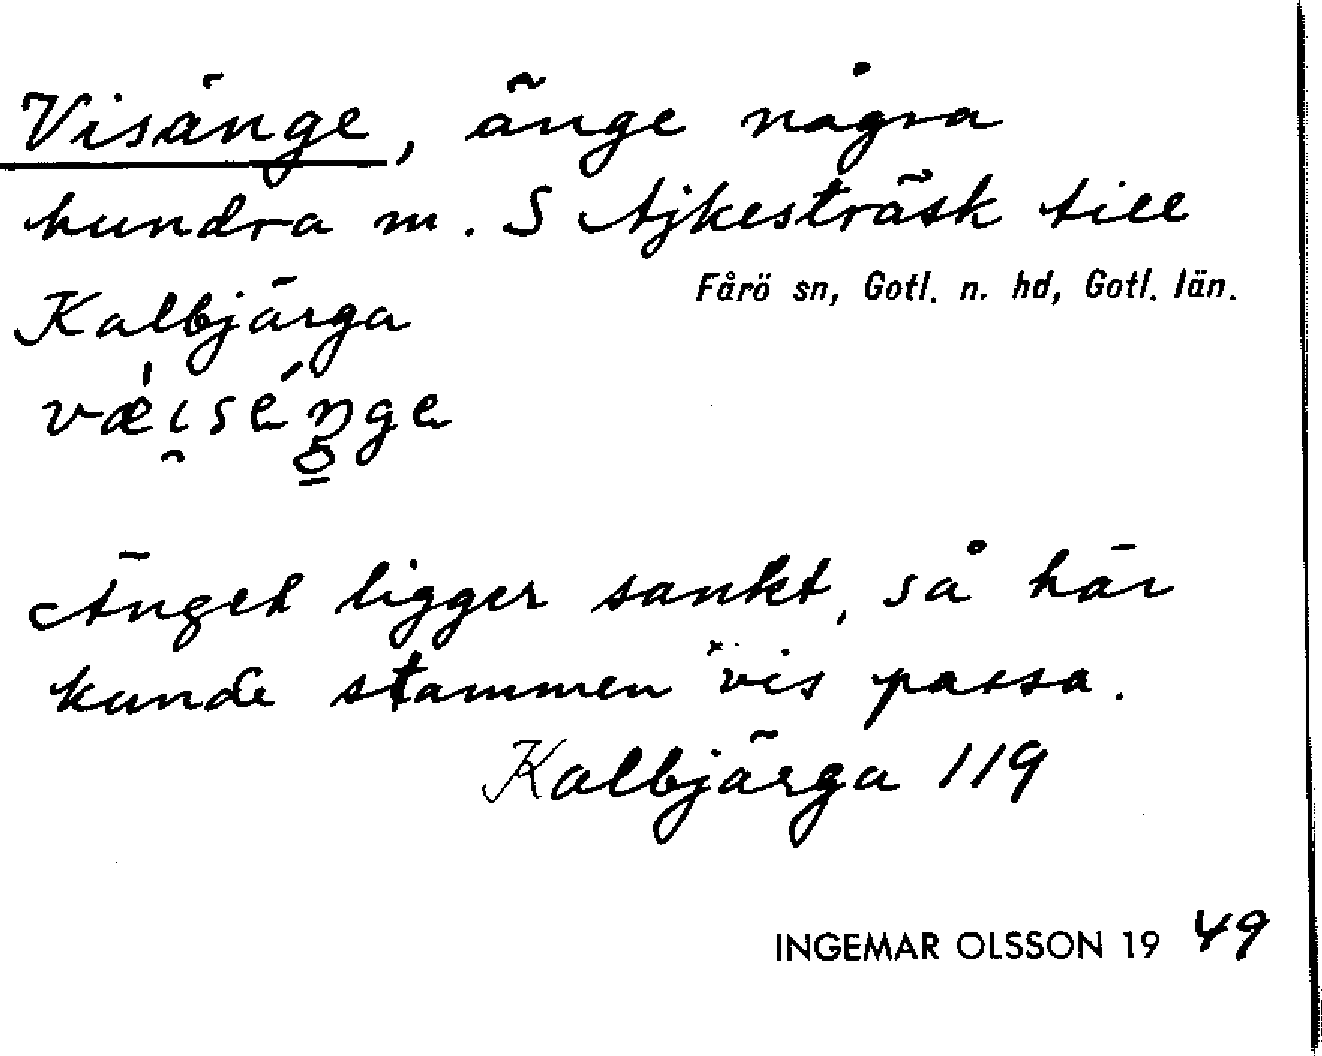 Visänge, änge några
hundra m. S Ajkesträsk till
Fårö sn, Gotl. n. hd, Gotl. län.
Kalbjärga
væ̀i̯sén̥ge
Änget ligger sankt, så här
kunde stammen vis passa.
Kalbjärga 119
INGEMAR OLSSON 19 49